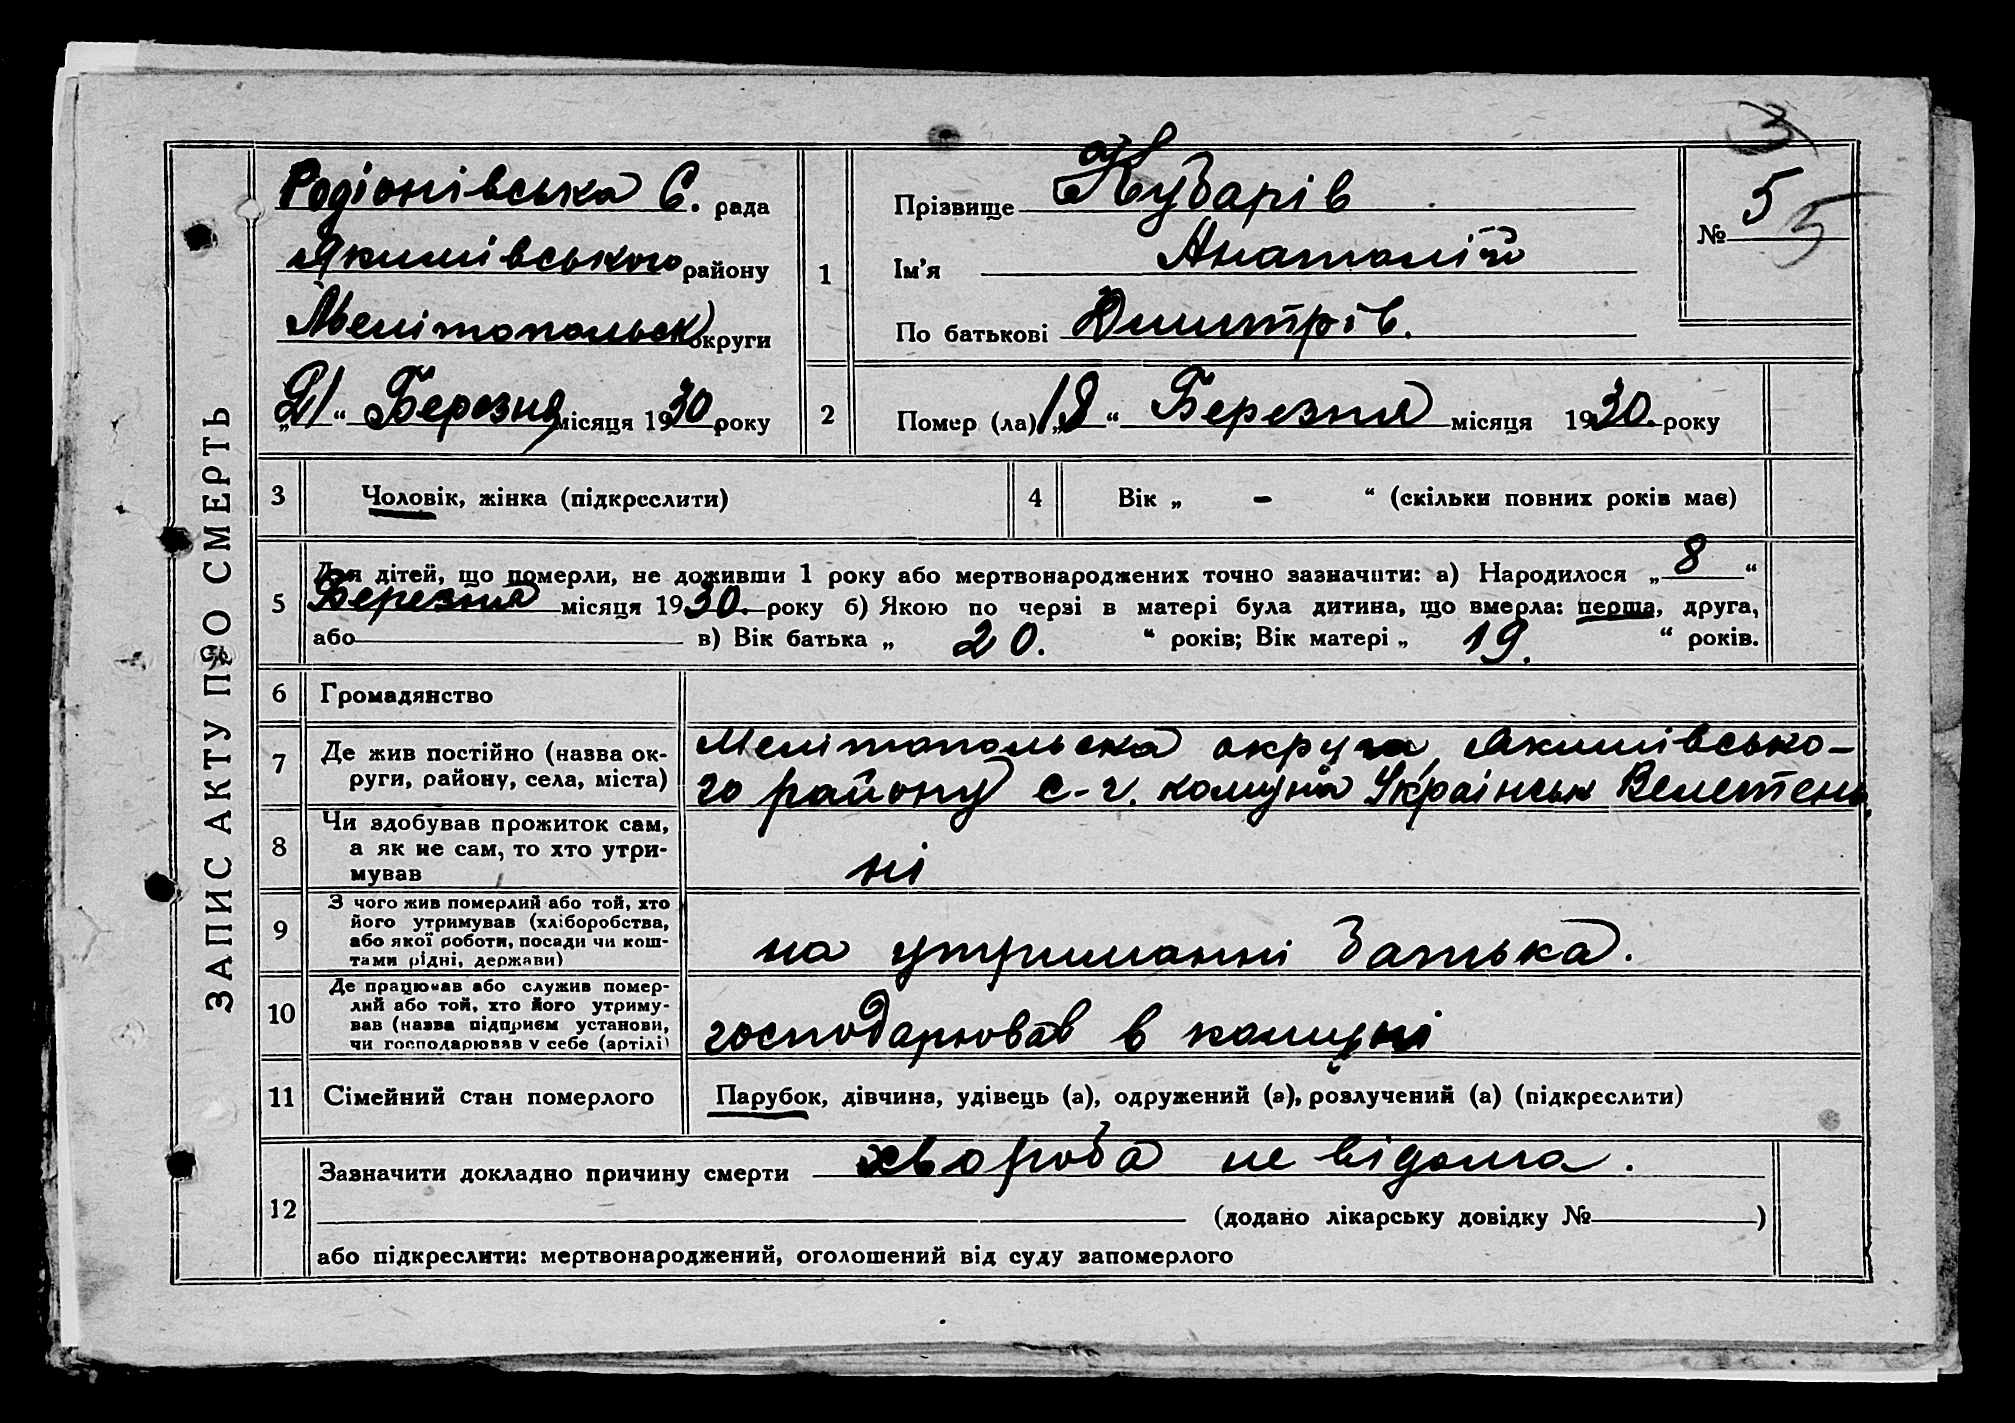 3
ЗАПИС АКТУ ПРО СМЕРТЬ
Родіонівська С. рада
Якимівського району
Мелітопольськ округи
„21“ Березня місяця 1930 року
1
Прізвище Кубарів
Ім'я Анатолій
По батькові Дмитрів.
№ 5 5
2
Помер (ла) „18“ Березня місяця 1930. року
3 Чоловік, жінка (підкреслити)
4 Вік „ - “ (скільки повних років має)
5 Для дітей, що померли, не доживши 1 року або мертвонароджених точно зазначити: а) Народилося „8“
Березня місяця 1930. року б) Якою по черзі в матері була дитина, що вмерла: перша, друга,
або в) Вік батька „ 20. “ років; Вік матері „ 19. “ років.
6 Громадянство
7 Де жив постійно (назва ок-
руги, району, села, міста)
Мелітопольска округа, Якимівсько-
го району с-г. комуна Українськ Велетень
8 Чи здобував прожиток сам,
а як не сам, то хто утри-
мував
ні
9 З чого жив померлий або той, хто
його утримував (хліборобства,
або якої роботи, посади чи кош-
тами рідні, держави)
на утриманні батька.
10 Де працював або служив помер-
лий або той, хто його утриму-
вав (назва підприєм установи,
чи господарював у себе (артілі)
господарював в комуні
11 Сімейний стан померлого
Парубок, дівчина, удівець (а), одружений (а), розлучений (а) (підкреслити)
12 Зазначити докладно причину смерти хвороба не відома.
(додано лікарську довідку № )
або підкреслити: мертвонароджений, оголошений від суду запомерлого